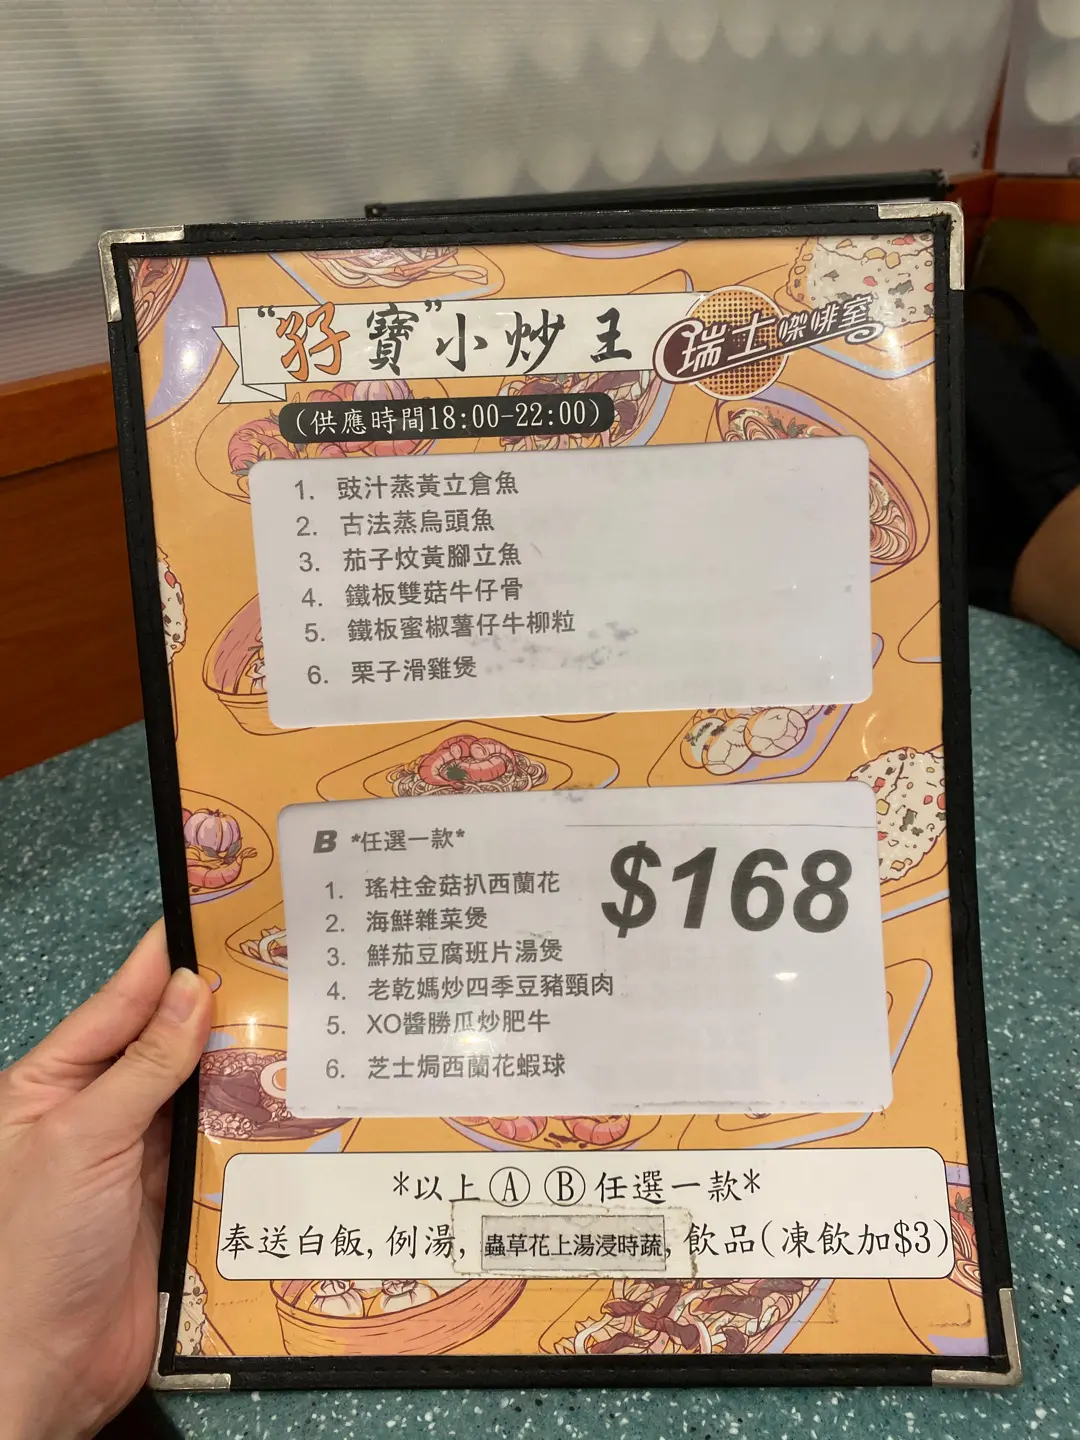 “孖寶”小炒王
瑞士咖啡室
(供應時間18:00-22:00)
1. 豉汁蒸黃立倉魚
2. 古法蒸烏頭魚
3. 茄子炆黃腳立魚
4. 鐵板雙菇牛仔骨
5. 鐵板蜜椒薯仔牛柳粒
6. 栗子滑雞煲
B *任選一款*
$168
1. 瑤柱金菇扒西蘭花
2. 海鮮雜菜煲
3. 鮮茄豆腐班片湯煲
4. 老乾媽炒四季豆豬頸肉
5. XO醬勝瓜炒肥牛
6. 芝士焗西蘭花蝦球
*以上Ⓐ Ⓑ任選一款*
奉送白飯,例湯,蟲草花上湯浸時蔬,飲品(凍飲加$3)